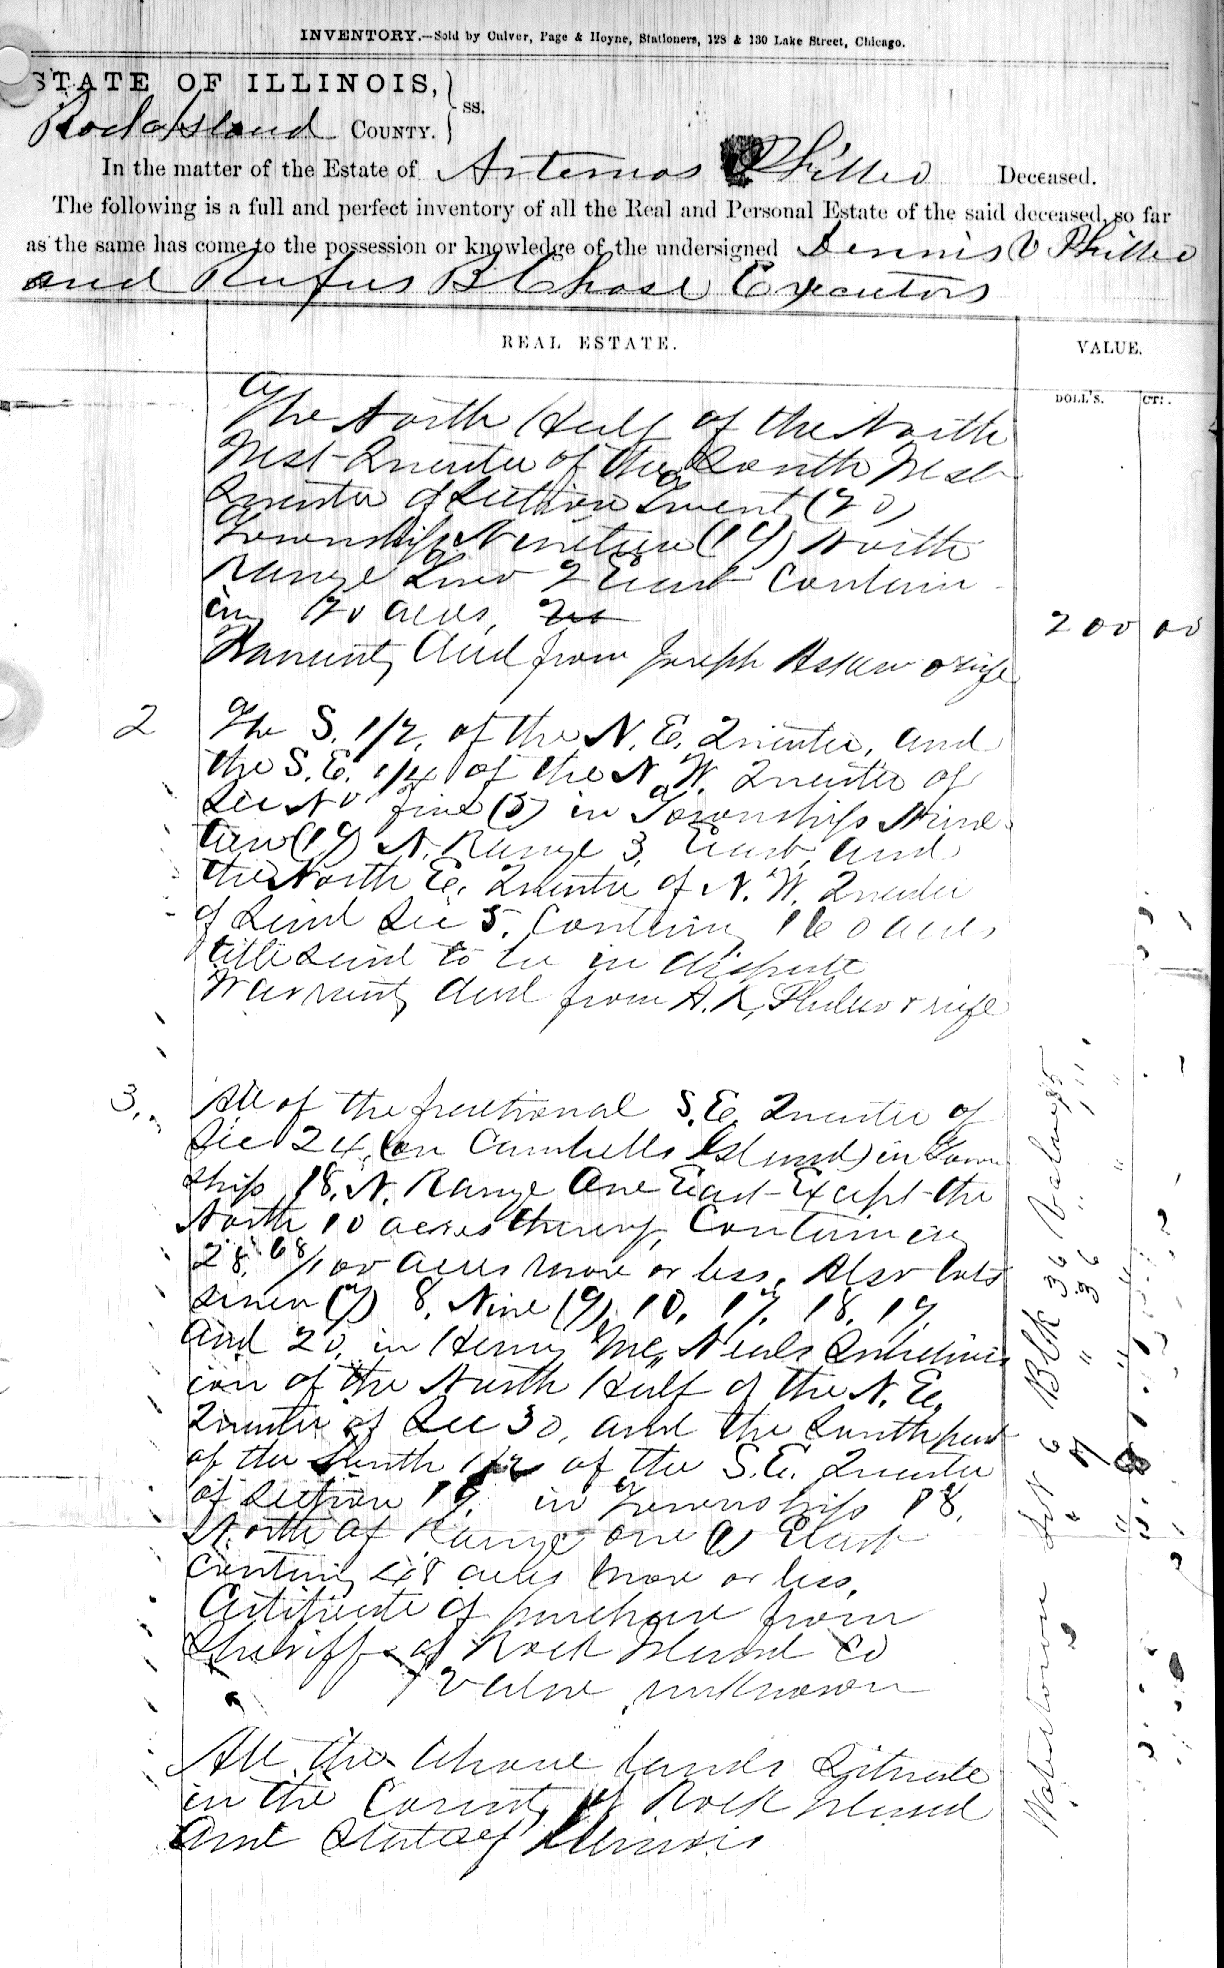 INVENTORY.—Sold by Culver, Page & Hoyne, Stationers, 128 & 130 Lake Street, Chicago.
STATE OF ILLINOIS,
Rock Island COUNTY. } ss.
In the matter of the Estate of Artemas Philleo Deceased.
The following is a full and perfect inventory of all the Real and Personal Estate of the said deceased, so far
as the same has come to the possession or knowledge of the undersigned Dennis V Philleo
and Rufus B Chase Executors
REAL ESTATE. VALUE.
DOLL'S. CTS.
The North Half of the North
West Quarter of the South West
Quarter of Section Twenty (20)
Township Nineteen (19) North
Range Two 2 East Contain
ing 20 acres, 200 00
Warranty Deed from Joseph Askew & wife
2 The S. 1/2. of the N. E. Quarter, and
the S. E. 1/4 of the N. W. Quarter of
Sec No five (5) in Township Nine
teen (19) N. Range 3, East, and
the North E. Quarter of N. W. Quarter
of Said Sec 5. Containing 160 acres
title said to be in dispute
Warranty deed from A. R. Philleo & wife
3. All of the fractional S. E. Quarter of
Sec 24, (on Cambells Island) in Town
ship 18. N. Range One East Except the
North 10 acres thereof, Containing
28, 68/100 acres more or less, Also Lots
seven (7) 8, Nine (9), 10, 17, 18, 19,
and 20, in Henry Mc, Neals Subdivis
ion of the North Half of the N. E.
Quarter of Sec 30, and the South part
of the South 1/2 of the S. E. Quarter
of Section 19, in Township 18,
North of Range one (1) East
containing 48 acres more or less,
Certificate of purchase from
Sheriff of Rock Island Co
Value unknown
All the above lands Situate
in the County of Rock Island
and State of Illinois
Watertown Lot 6 Blk 36 Value
" 7 " 36 "